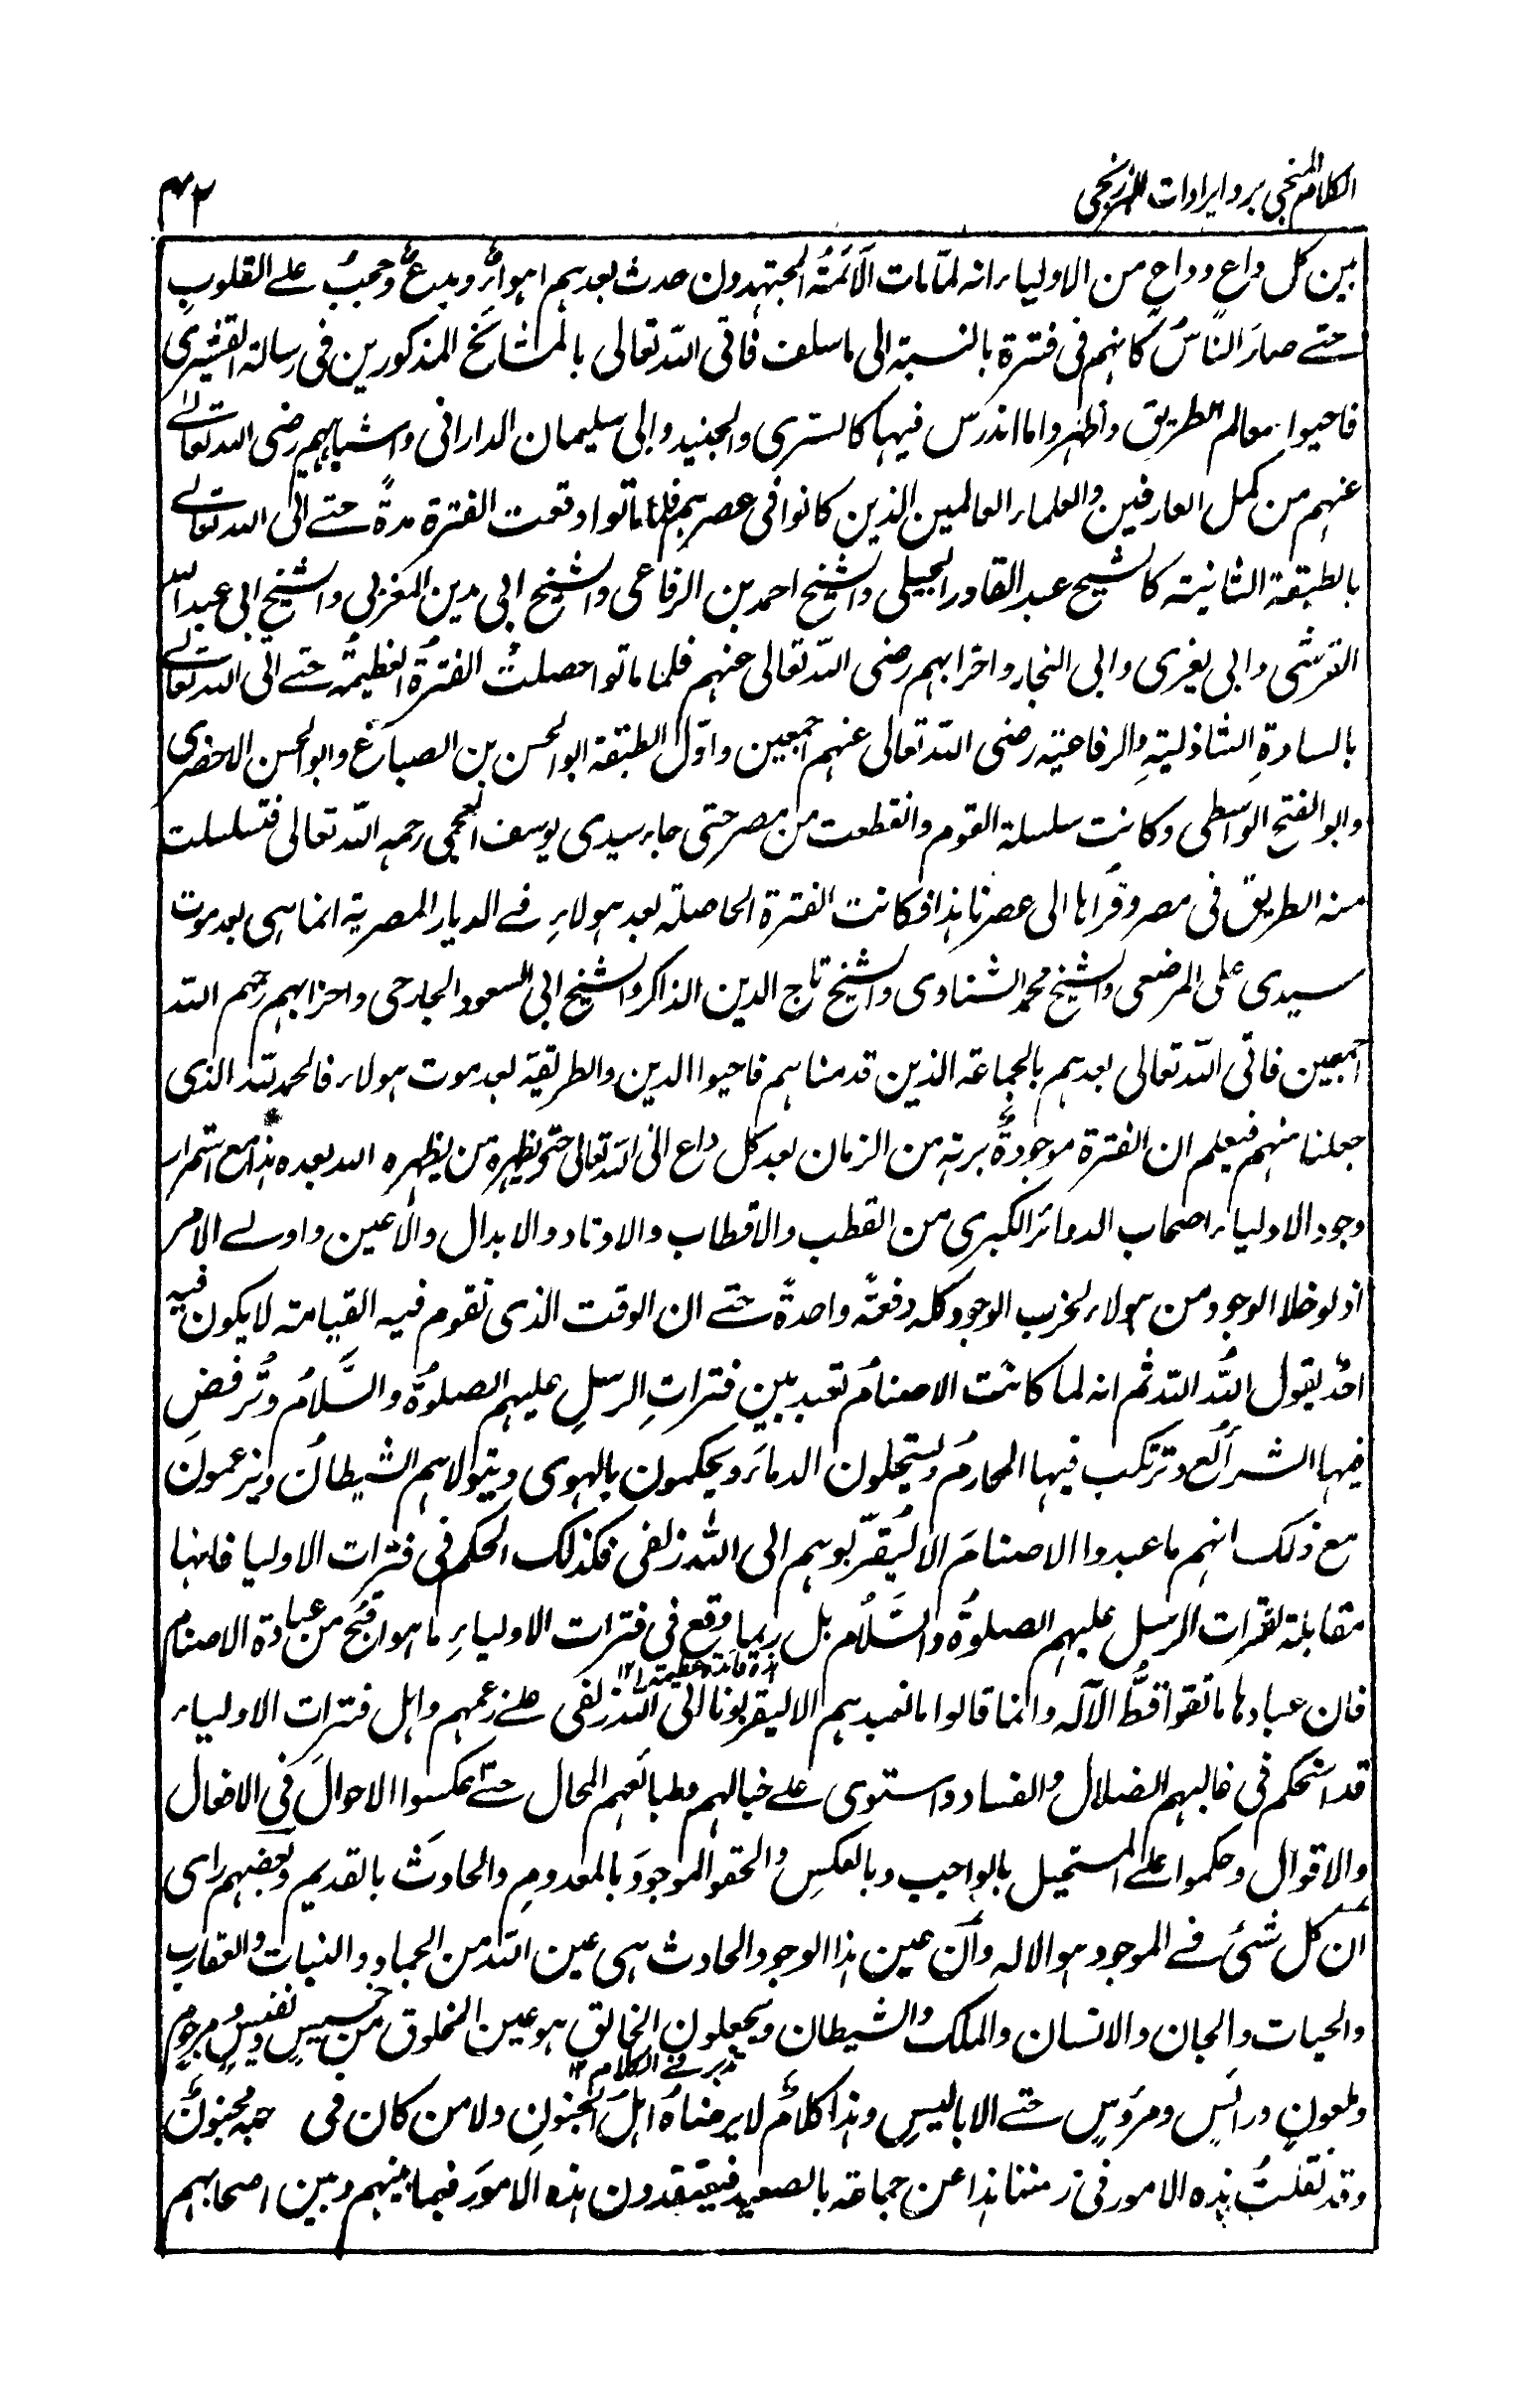 الكلام المنجي برد ايرادات البرزنجي
٤٢
بين كل داع وداع من الاولياء انه لمّا مات الَائمّةُ المجتهدون حدث بعدهم اهواءٌ وبدعٌ وحجبٌ على القلوب
حتى صارَ الناسُ كانهم فى فترة بالنسبة الى ما سلف فاتى الله تعالى بالمشائخ المذكورين فى رسالة القشيرى
فاحيوا معالم الطريق واظهروا ما اندرس فيها كالسترى والجنيد وابى سليمان الدارانى واشباههم رضى الله تعالى
عنهم من كمل العارفين والعلماء العالمين الذين كانوا فى عصرهم فلما ماتوا وقعت الفترة مدةً حتى اتى الله تعالى
بالطبقة الثانية كالشيح عبد القادر الجيلى والشيخ احمد بن الرفاعى والشيخ ابى مدين المغربى والشيخ ابى عبد الله
القرشى وابى يغرى وابى النجار واحزابهم رضى الله تعالى عنهم فلما ماتوا حصلتْ الفترةُ العظيمةُ حتى اتى الله تعالى
بالسادةِ الشاذليةِ والرفاعيّة رضى الله تعالى عنهم اجمعين واوّل الطبقة ابو الحسن بن الصباغ وابو الحسن الاخضرى
وابو الفتح الواسطى وكانت سلسلة القوم وانقطعت من مصر حتى جاء سيدى يوسف العجمى رحمه الله تعالى فتسلسلت
منه الطريق فى مصر وقُراها الى عصرنا هذا فكانت الفترة الحاصلة بعد هولاءِ فى الديار المصرية انما هى بعد موت
سيدى على المرضعى والشيخ محمد الشناوى والشيخ تاج الدين الذاكر والشيخ ابى السعود الجارحى واحزابهم رحمهم الله
اجمعين فاتى الله تعالى بعدهم بالجماعة الذين قدمناهم فاحيوا الدين والطريقة بعد موت هولاء فالحمد لله الذى
جعلنا منهم فيعلم ان الفترة موجودةٌ برهة من الزمان بعد كل داع الى الله تعالى حتى يظهره من يظهره الله بعده هذا مع استمرار
وجود الاولياء اصحاب الدوائر الكبرى من القطب والاقطاب والاوتاد والابدال والاعين واولى الامر
اذ لو خلا الوجود من هولاء لخرب الوجود كله دفعةً واحدةً حتى ان الوقت الذى تقوم فيه القيامة لا يكون فيه
احدٌ يقول اللهُ الله ثم انه لما كانت الاصنامُ تعبد بين فتراتِ الرسلِ عليهم الصلوةُ والسَّلامُ وتُرفض
فيها الشرائع وترتكب فيها المحارمُ ويستحلون الدماءَ ويحكمون بالهوى ويتولاهم الشيطانُ ويزعمونَ
مع ذلك انهم ما عبدوا الاصنامَ الا ليُقرّبوهم الى اللهِ زلفى فكذلك الحكم فى فترات الاوليا فانها
مقابلة لفترات الرسل عليهم الصلوةُ والسَّلامُ بل ربما وقع فى فترات الاولياءِ ما هو اقبح من عبادة الاصنام
هذه فائدة عظيمة ١٢
فان عبادها ما تقوا قطُّ الآله وانما قالوا ما نعبدهم الا ليقربونا الى الله زلفى على زعمهم واهل فترات الاولياء
قد استحكم فى غالبهم الضلال والفساد واستوى على خيالهم وطبائعهم المحال حتى عكسوا الاحوالَ فى الافعال
والاقوال وحكموا على المستحيل بالواجب وبالعكسِ والحقوا الموجودَ بالمعدومِ والحادثَ بالقديم وبعضهم راى
ان كل شئ فى الموجود هو الالهِ وانَ عين هذا الوجود الحادث هى عين الله من الجماد والنبات والعقارب
والحيات والجان والانسان والملك والشيطان ويجعلون الخالق هو عين المخلوق من خسيسٍ ونفيسٍ ومرجومٍ
تدبر فى الكلام ١٢
وملعونٍ ورائسٍ ومرؤسٍ حتى الاباليسِ وهذا كلامٌ لا يرضاهُ اهلُ الجنونِ ولا من كان فى حبه مجنونٌ
وقد نقلتُ هذه الامور فى زمننا هذا عن جماعة بالصعيد فيعتقدون هذه الامورَ فيما بينهم وبين اصحابهم